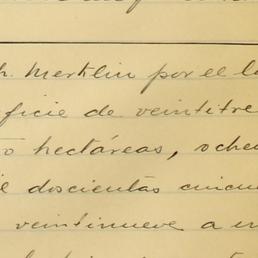 h. Merklin por el l
ficie de veintitre
o hectáreas, oche
il doscientas cincu
veintinueve a